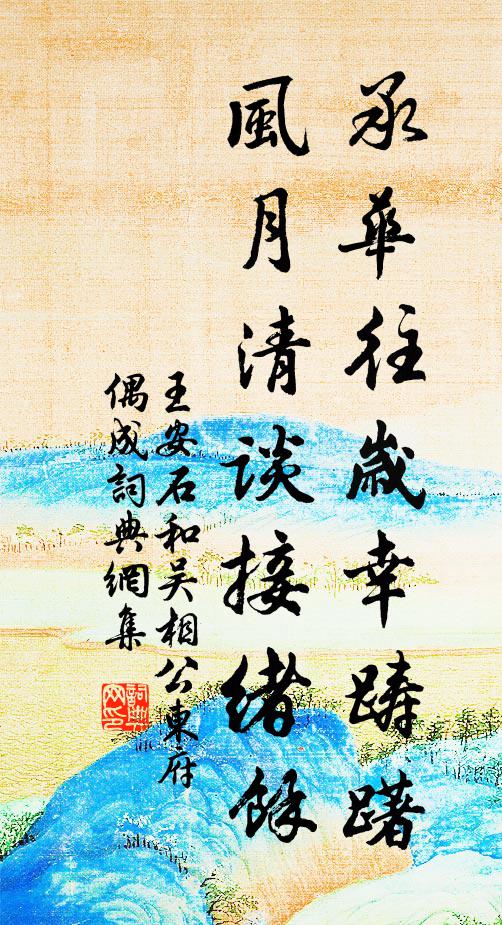 承華往歲幸躊躇
風月清談接緒餘
王安石和吳相公東府
偶成詞典網集